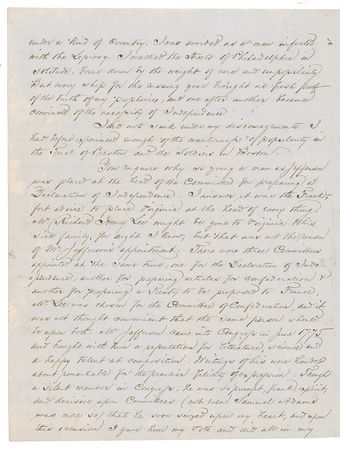 under a kind of Coventry. I was avoided as a man infected
with the Leprosy. I walked the Streets of Philadelphia in
solitude, borne down by the weight of care and unpopularity
But every ship for the ensuing year brought us fresh proof
of the truth of my prophesies, and one after another became
convinced of the necessity of Independence
I did not sink under my discouragements. I
had before experienced enough of the wantonness of popularity in
the Trial of Preston and the Soldiers in Boston
You enquire why so young a man as Jefferson
was placed at the head of the Committee for preparing a
Declaration of Independence. I answer it was the Frank-
fort advice to place Virginia at the head of every thing.
Mr Richard Henry Lee might be gone to Virginia, this
sick family, for aught I know, but that was not the reason
of Mr Jefferson's appointment. There were three Committees
appointed at the same time, one for the Declaration of Inde-
pendence another for preparing articles for Confederation &
another for preparing a Treaty to be proposed to France
Mr Lee was chosen for the Committee of Confederation, and it
was not thought convenient that the same person should
be upon both. Mr Jefferson came into Congress in June 1775
and brought with him a reputation for literature, science and
a happy talent at composition. Writings of his were handed
about remarkable for the peculiar felicity of expression. Though
a silent member in Congress, he was so prompt, frank, explicit
and decisive upon Committees (not even Samuel Adams
was more so) that he soon seized upon my heart, and upon
this occasion I gave him my Vote and did all in my